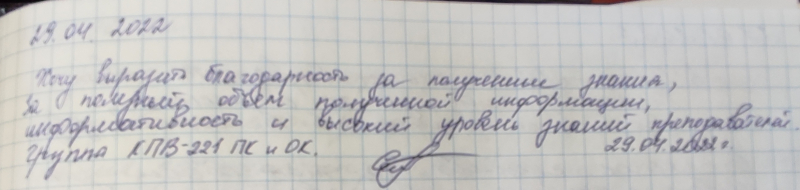 29.04.2022
Хочу выразить благодарность за полученные знания,
за полный объем полученной информации,
информативность и высокий уровень знаний преподавателей.
Группа КПВ-221 ПК и ОК. 29.04.2022г.